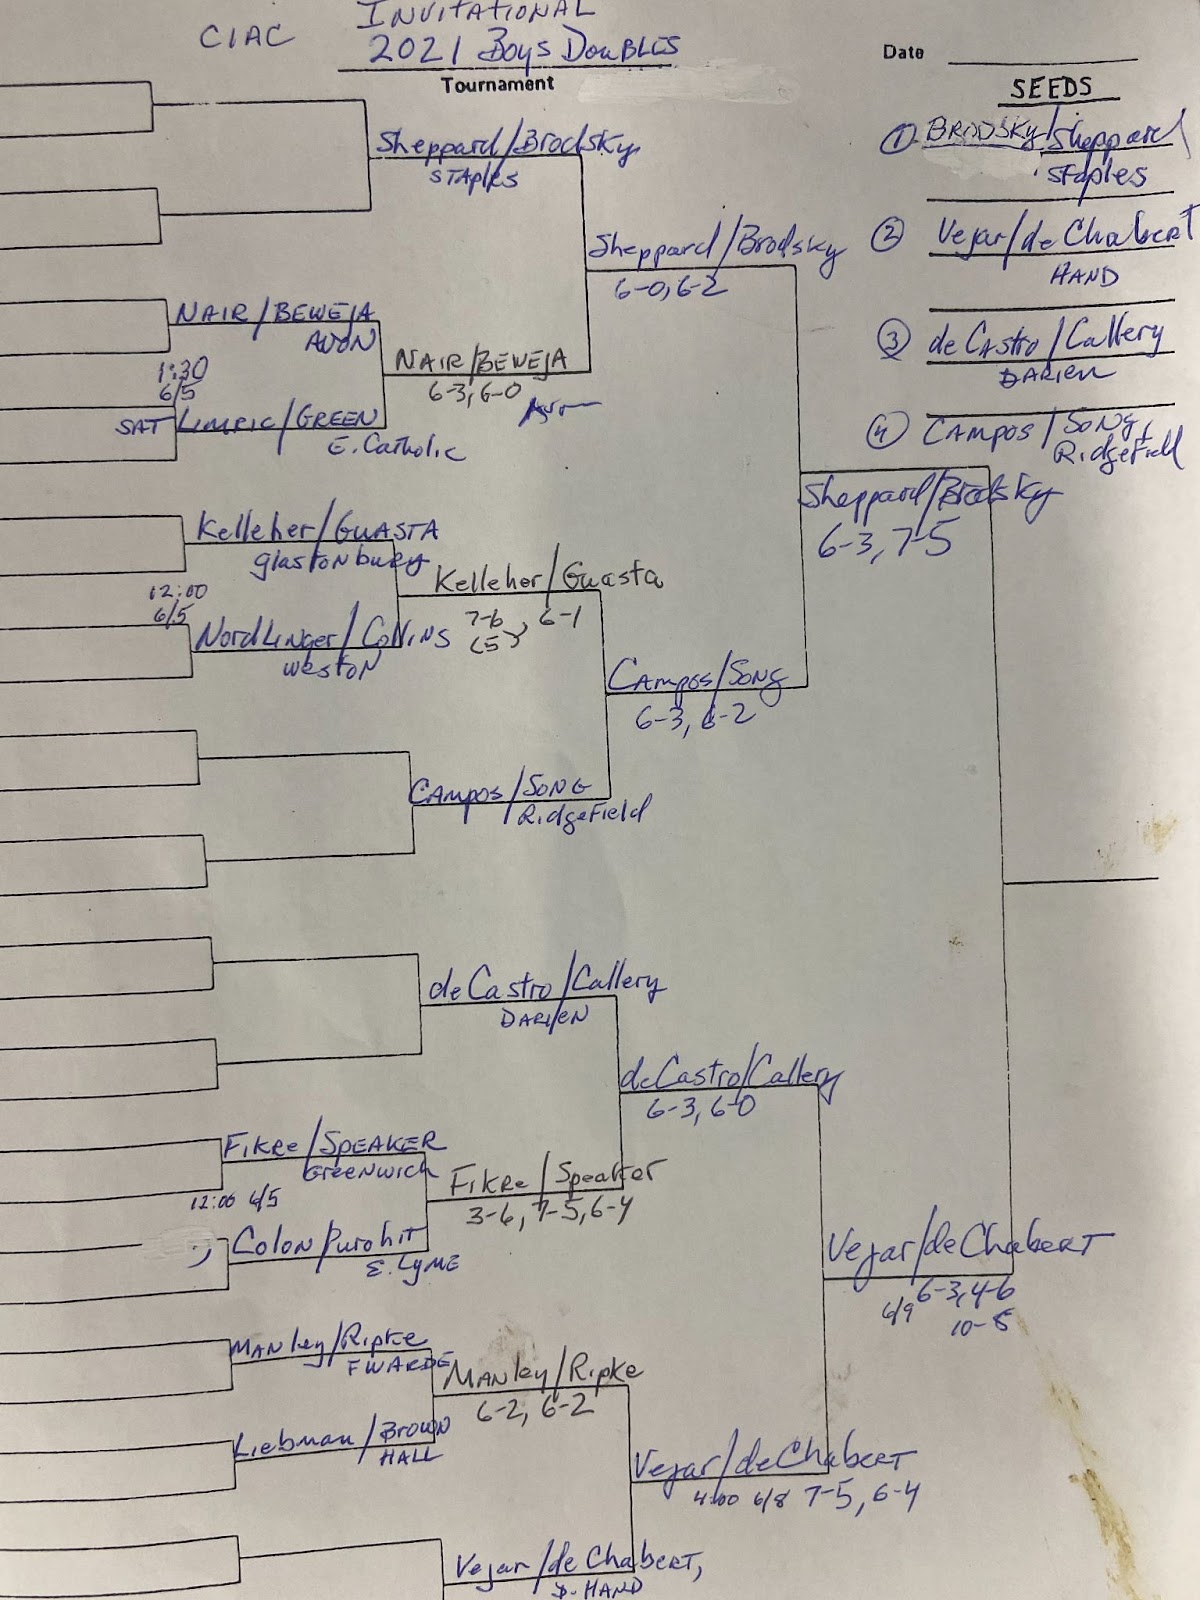 CIAC INVITATIONAL
2021 Boys Doubles
Tournament
Date
SEEDS
① BRODSKY/Sheppard
Staples
② Vejar/de Chabert
HAND
③ de Castro/Callery
DARIEN
④ CAMPOS/SONG
Ridgefield
Sheppard/Brodsky
STAples
Sheppard/Brodsky
6-0, 6-2
NAIR/BEWEJA
AVON
1:30
6/5
SAT
NAIR/BEWEJA
6-3, 6-0
Limric/GREEN
E. Catholic
Sheppard/Brodsky
6-3, 7-5
Kelleher/GUASTA
glastonbury
12:00
6/5
Kelleher/Guasta
7-6, 6-1
(5)
NordLinger/Collins
Weston
CAMPOS/SONG
6-3, 6-2
CAMPOS/SONG
RidgeField
de Castro/Callery
DARIEN
de Castro/Callery
6-3, 6-0
Fikre/SPEAKER
Greenwich
12:00 6/5
Fikre/Speaker
3-6, 7-5, 6-4
Colon/Purohit
E. Lyme
Vejar/de Chabert
6/9 6-3, 4-6
10-8
Manley/Ripke
FWARDE
Manley/Ripke
6-2, 6-2
Liebman/Brown
HALL
Vejar/de Chabert
4:00 6/8 7-5, 6-4
Vejar/de Chabert,
D. HAND